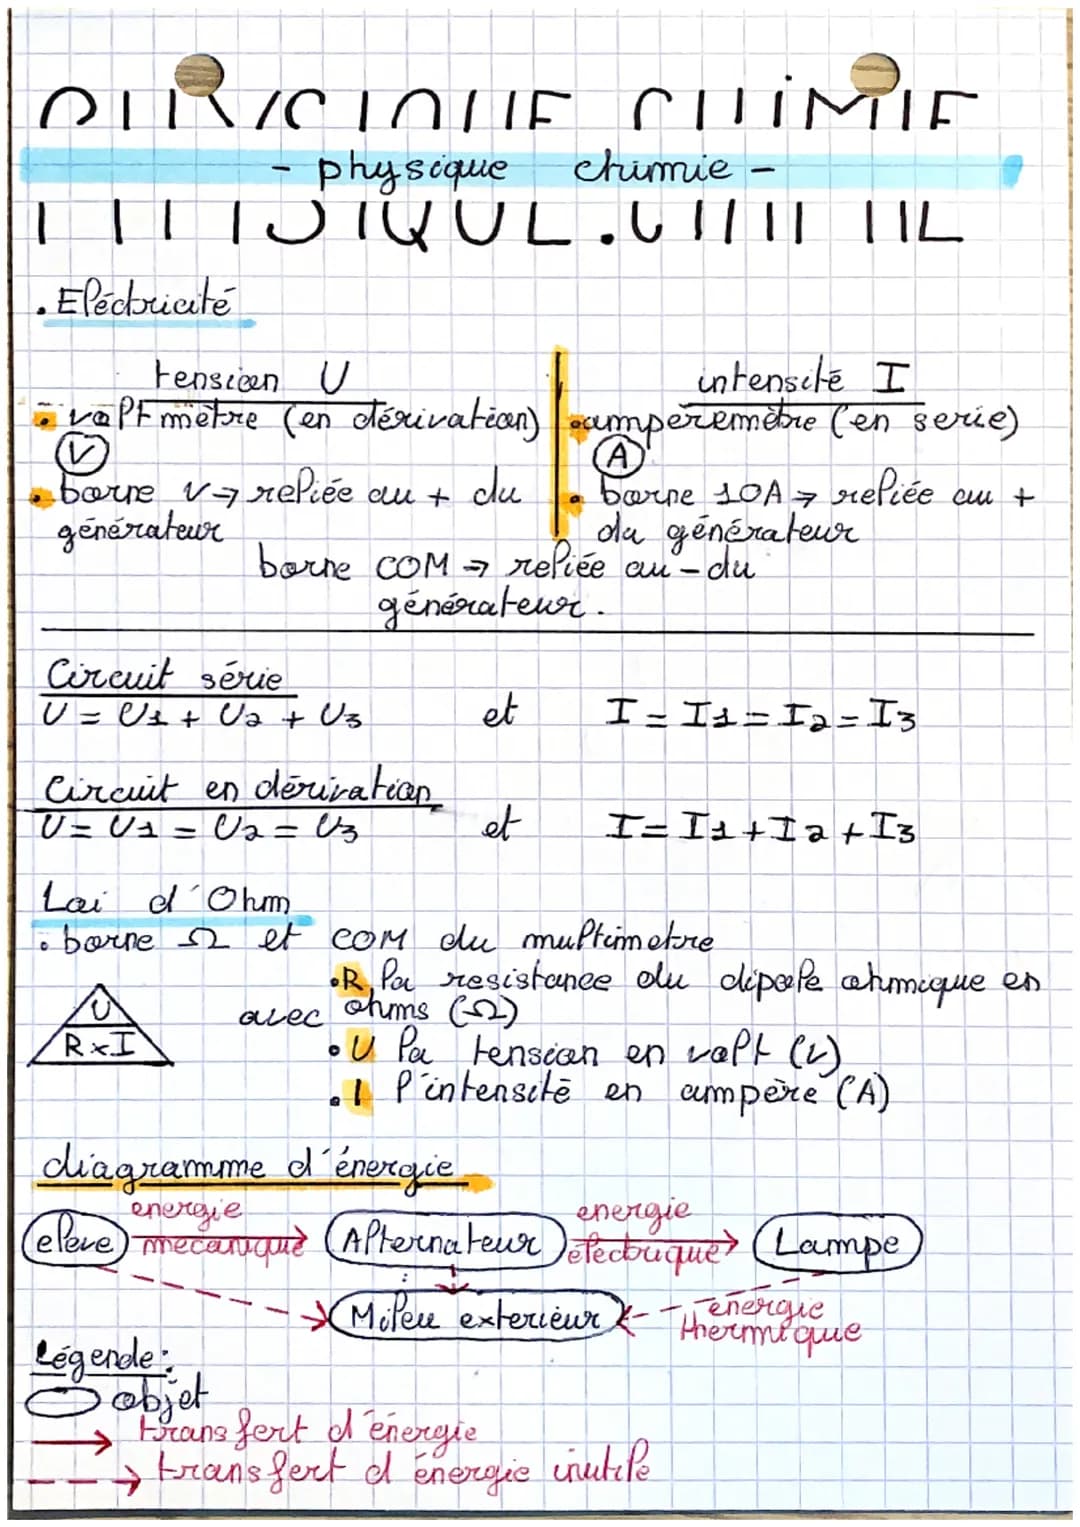 PHYSIQUE CHIMIE
- physique chimie -
PHYSIQUE.CHIMIE
. Eléctricité
tension U
• voltmètre (en dérivation)
V
• borne V → reliée au + du
générateur
intensité I
• ampèremètre (en serie)
A
• borne 10A → reliée au +
du générateur
borne COM → reliée au - du
générateur.
Circuit série
U = U1 + U2 + U3 et I = I1 = I2 = I3
Circuit en dérivation
U = U1 = U2 = U3 et I = I1 + I2 + I3
Loi d'Ohm
• borne Ω et COM du multimetre
U
R x I
avec
•R la resistance du dipole ohmique en
ohms (Ω)
•U la tension en volt (V)
•I l'intensité en ampère (A)
diagramme d'énergie
eleve energie mecanique Alternateur energie électrique Lampe
Milieu exterieur energie thermique
Légende :
objet
transfert d'énergie
transfert d'énergie inutile